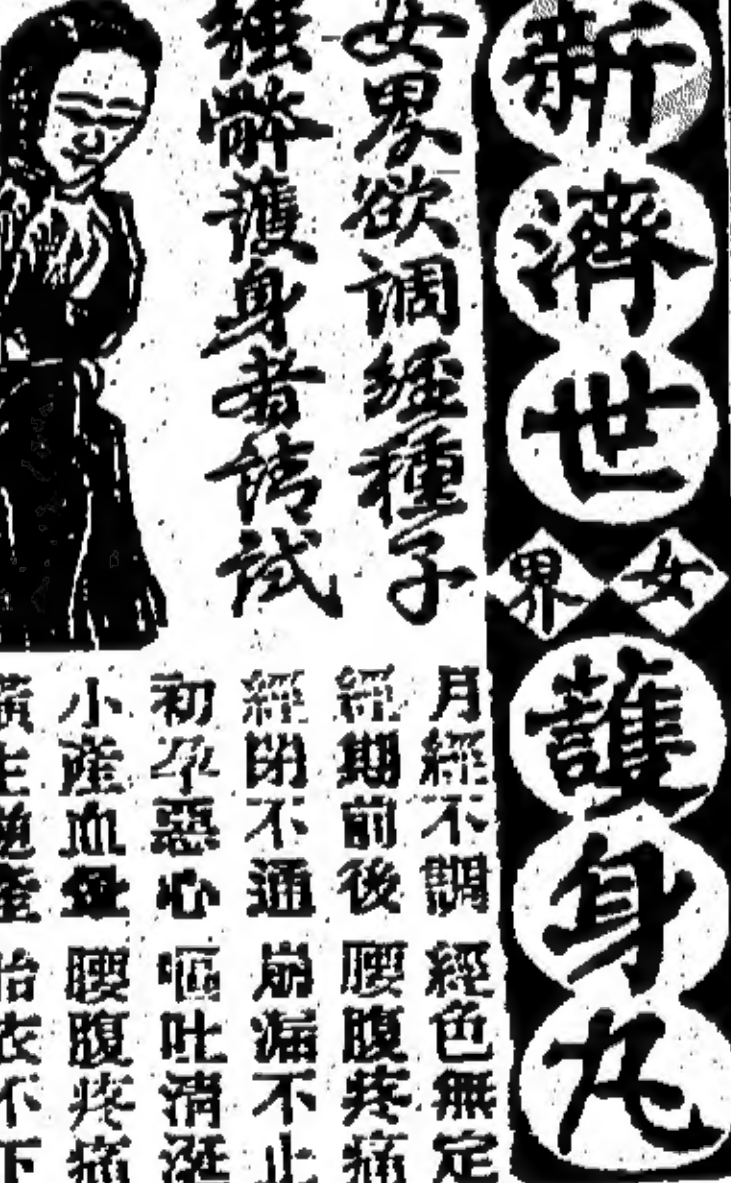 新濟世女界護身丸
女界欲調經種子
強體護身者請試
月經不調 經色無定
經期前後 腰腹疼痛
經閉不通 崩漏不止
初孕惡心 嘔吐清涎
小產血暈 腰腹疼痛
胎衣不下